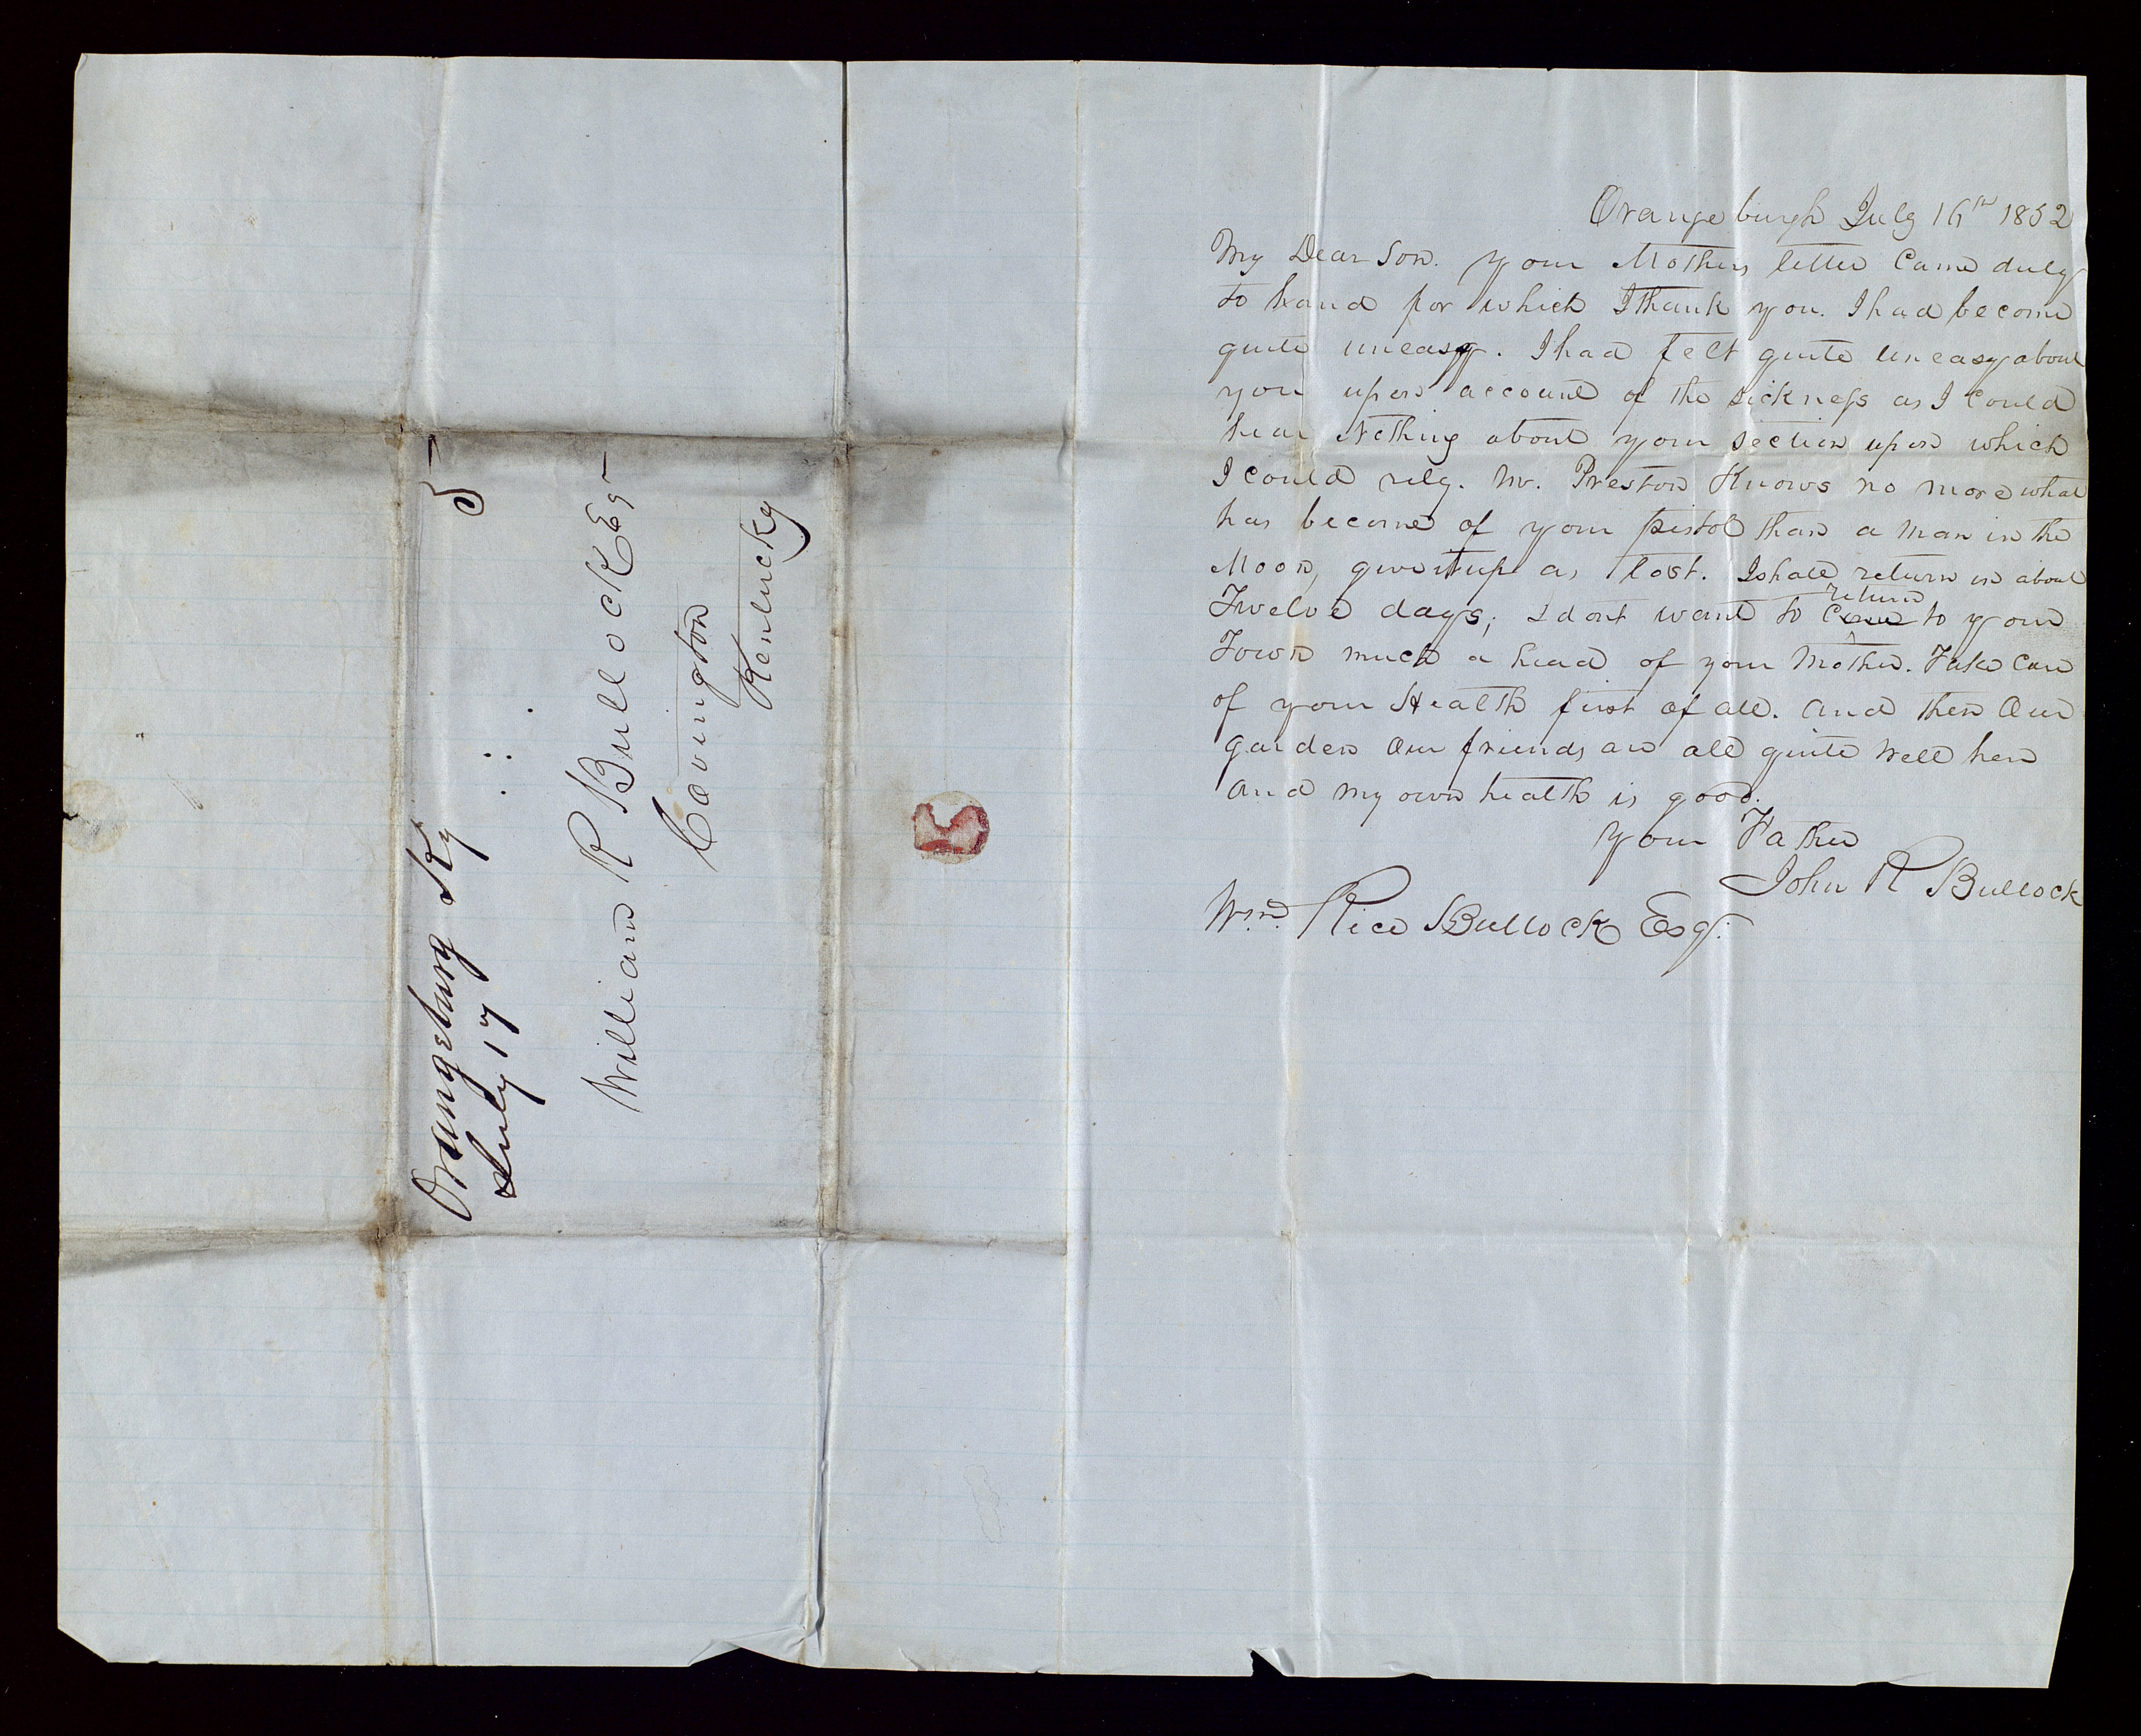 Orangeburg Ky
July 17
5
William R Bullock Esq
Covington
Kentucky
Orangeburgh July 16th 1852
My Dear Son. your Mothers letter Came duly
to hand for which I thank you. I had become
quite uneasy. I had felt quite uneasy about
you upon account of the sickness as I Could
hear Nothing about your section upon which
I could rely. Mr. Preston Knows no more what
has become of your pistol than a man in the
Moon, give it up as lost. I shall return in about
return
Twelve days; I dont want to Come to your
Town much a head of your Mother. Take Care
of your Health first of all. And then Our
garden Our friends are all quite Well here
And my own health is good.
your Father
John R Bullock
Wm. Rice Bullock Esq.